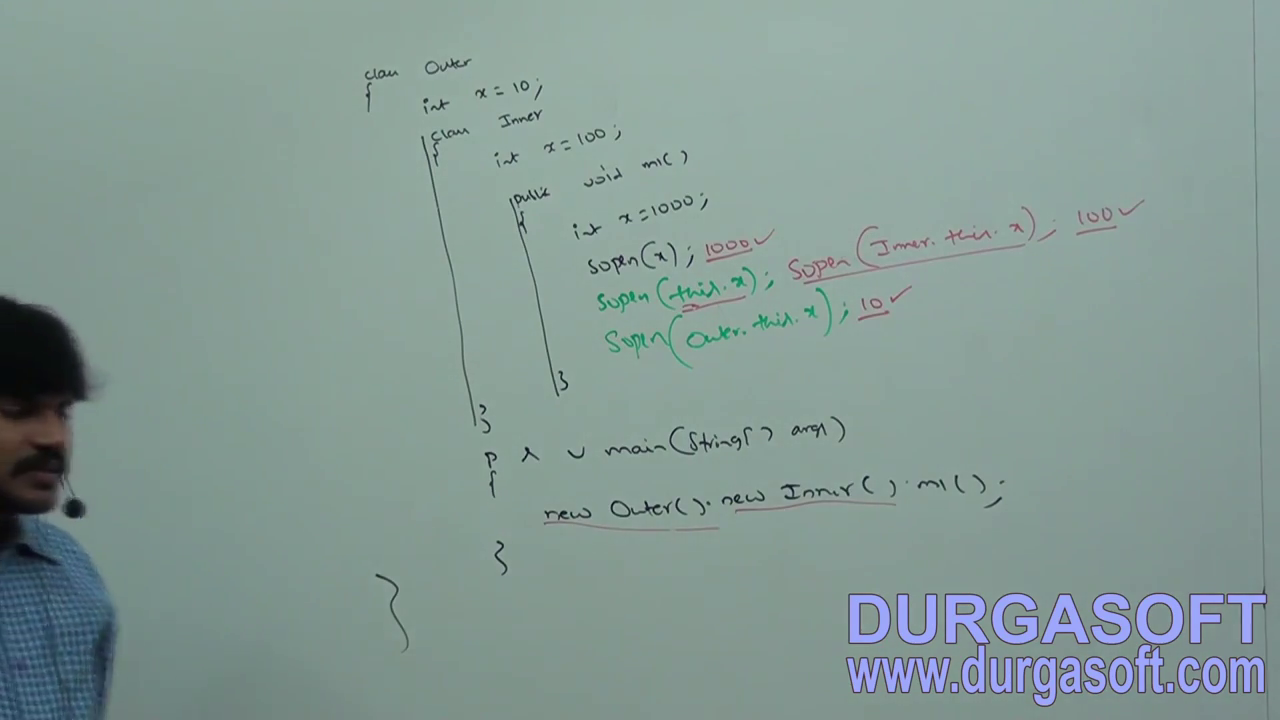 class Outer
{
int x = 10;
class Inner
{
int x = 100;
public void m1()
{
int x = 1000;
sopln(x); 1000 ✓
sopln(this.x); sopln(Inner.this.x); 100 ✓
sopln(Outer.this.x); 10 ✓
}
}
p s v main(String[] args)
{
new Outer().new Inner().m1();
}
}
DURGASOFT
www.durgasoft.com